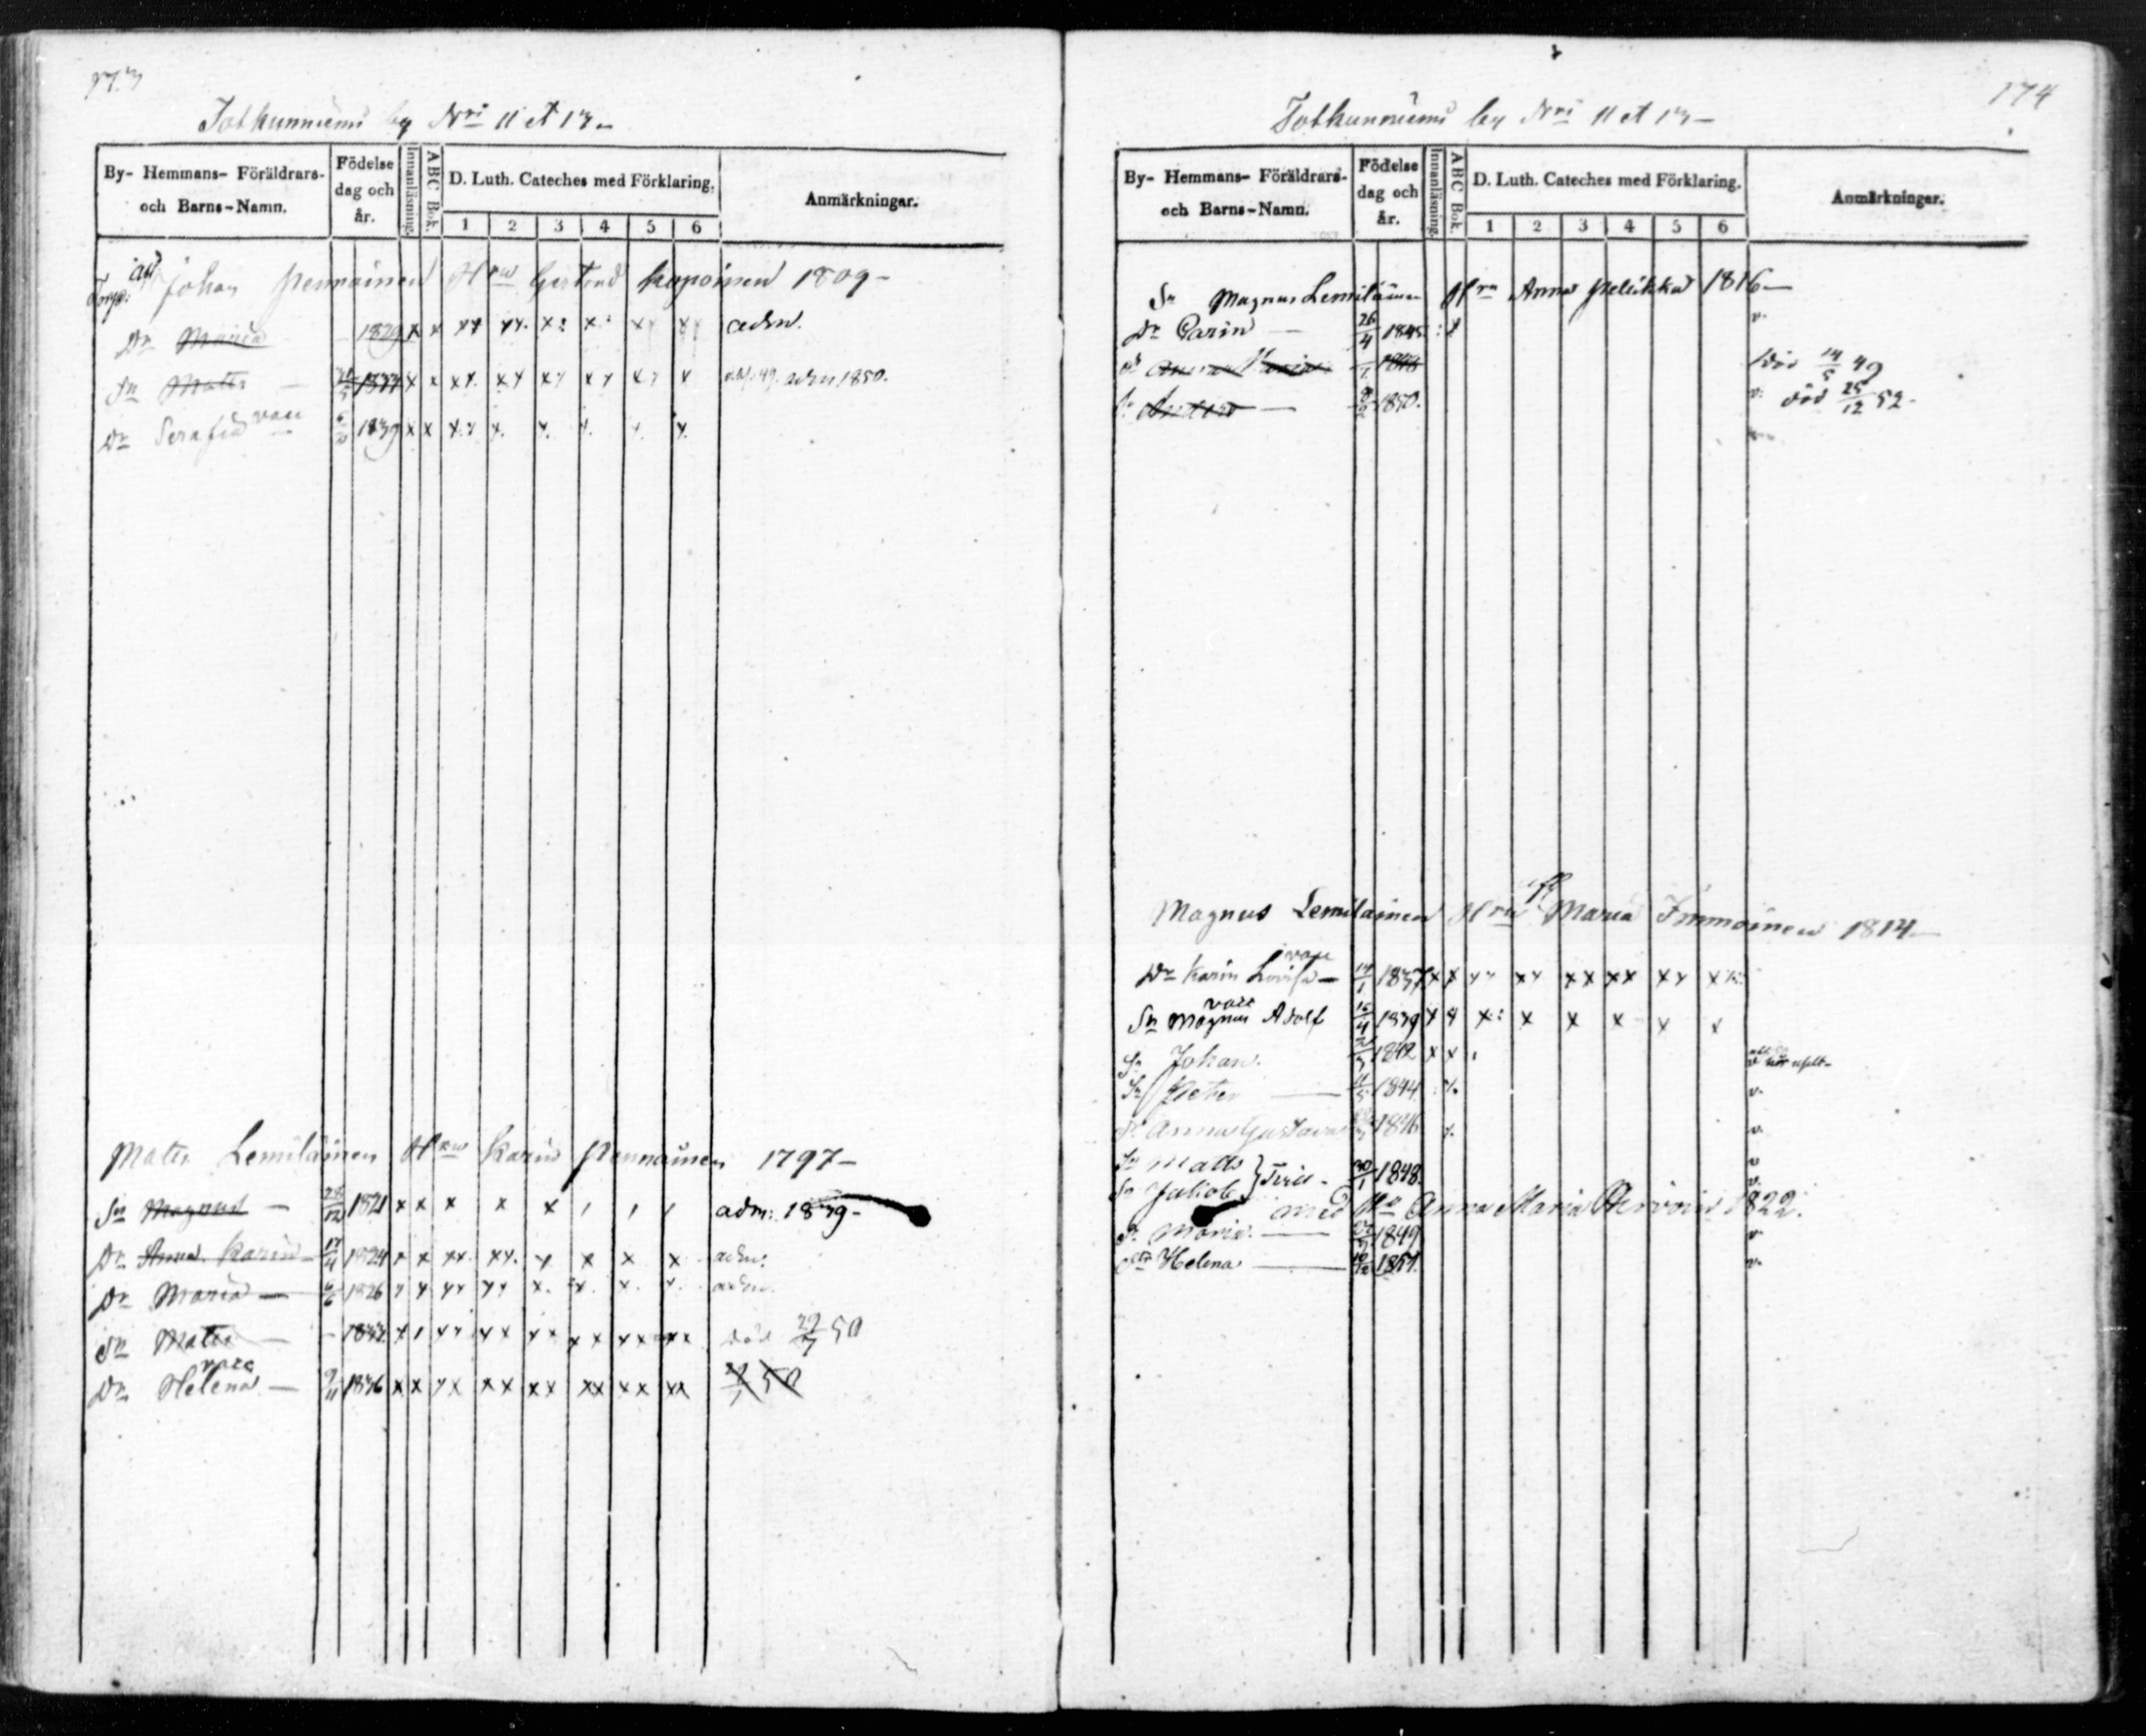 173
Jothunniemi by Nri 11 et 13
By- Hemmans- Föräldrars- och Barns-Namn. Födelse dag och år. Innanläsning. ABC Bok. D. Luth. Cateches med Förklaring. Anmärkningar.
1 2 3 4 5 6
Johan Pennainen Hru Gertrud Kapoinen 1809
Dr Maria 1829 x x xx xx. x: x: xx xx adm.
Sn Mats 1834 x x xx xx xx xx xx x adm 1850.
Dr Serafia vacc 1839 x x x.x x. x. x. x. x.
Mats Lemiläinen Hru Karin Pennainen 1797
Sn Magnus 28/12 1821 x x x x x , , , adm: 1839
Dr Anna Karin 17/4 1824 x x xx. xx. x x x x adm:
Dr Maria 6/6 1826 x x xx xx x. x. x. x. adm.
Sn Mats 1832 x , xx xx xx xx xx xx död 29/7 50
Dr Helena vacc 9/11 1836 x x xx xx xx xx xx xx
174
Jothunniemi by Nri 11 et 13
By- Hemmans- Föräldrars- och Barns-Namn. Födelse dag och år. Innanläsning. ABC Bok. D. Luth. Cateches med Förklaring. Anmärkningar.
1 2 3 4 5 6
Sn Magnus Lemiläinen Hru Anna Pelikka 1816
Dr Carin 26/4 1845 : x v.
1848 död 14/5 49
Sn Anders 8/2 1850. v. död 25/12 52
Magnus Lemiläinen Hru Maria Immoinen 1814
Dr Karin Lovisa vacc 14/1 1837 x x xx xx xx xx xx xx
Sn Magnus vacc Adolf 16/4 1839 x x x: x x x x x
Sn Johan. 1842 x x ,
Sn Peter 11/5 1844 v.
Dr Anna Gustava 1846 v.
Sn Matts v
Sn Jakob } Tvill. 30/1 1848. v.
med Hu Anna Maria Hirvoin 1822.
Dr Maria. 1849 v.
Dr Helena 1851. v.